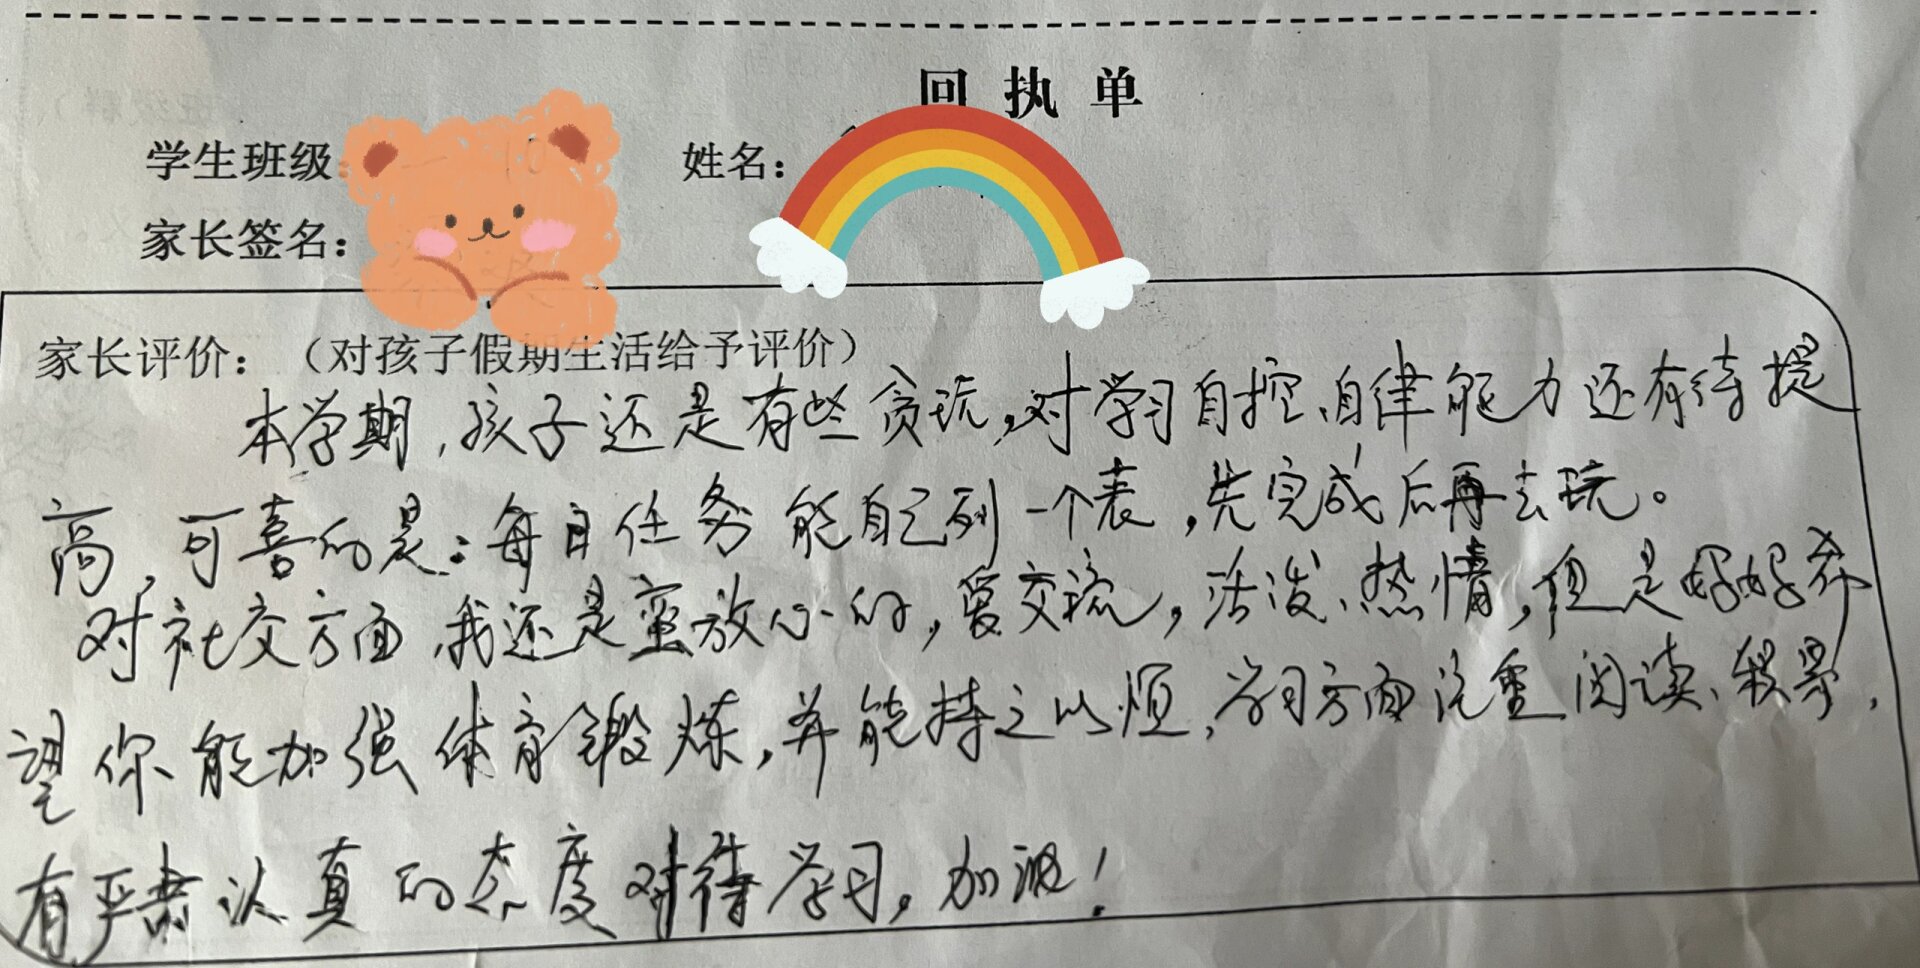 回执单
学生班级： 姓名：
家长签名：
家长评价：（对孩子假期生活给予评价）
本学期，孩子还是有些贪玩，对学习自控、自律能力还有待提
高，可喜的是：每日任务能自己列一个表，先完成后再去玩。
对社交方面，我还是蛮放心的，爱交流，活泼、热情，但是好好希
望你能加强体育锻炼，并能持之以烦，学习方面注重阅读、积累，
有严肃认真的态度对待学习，加油！